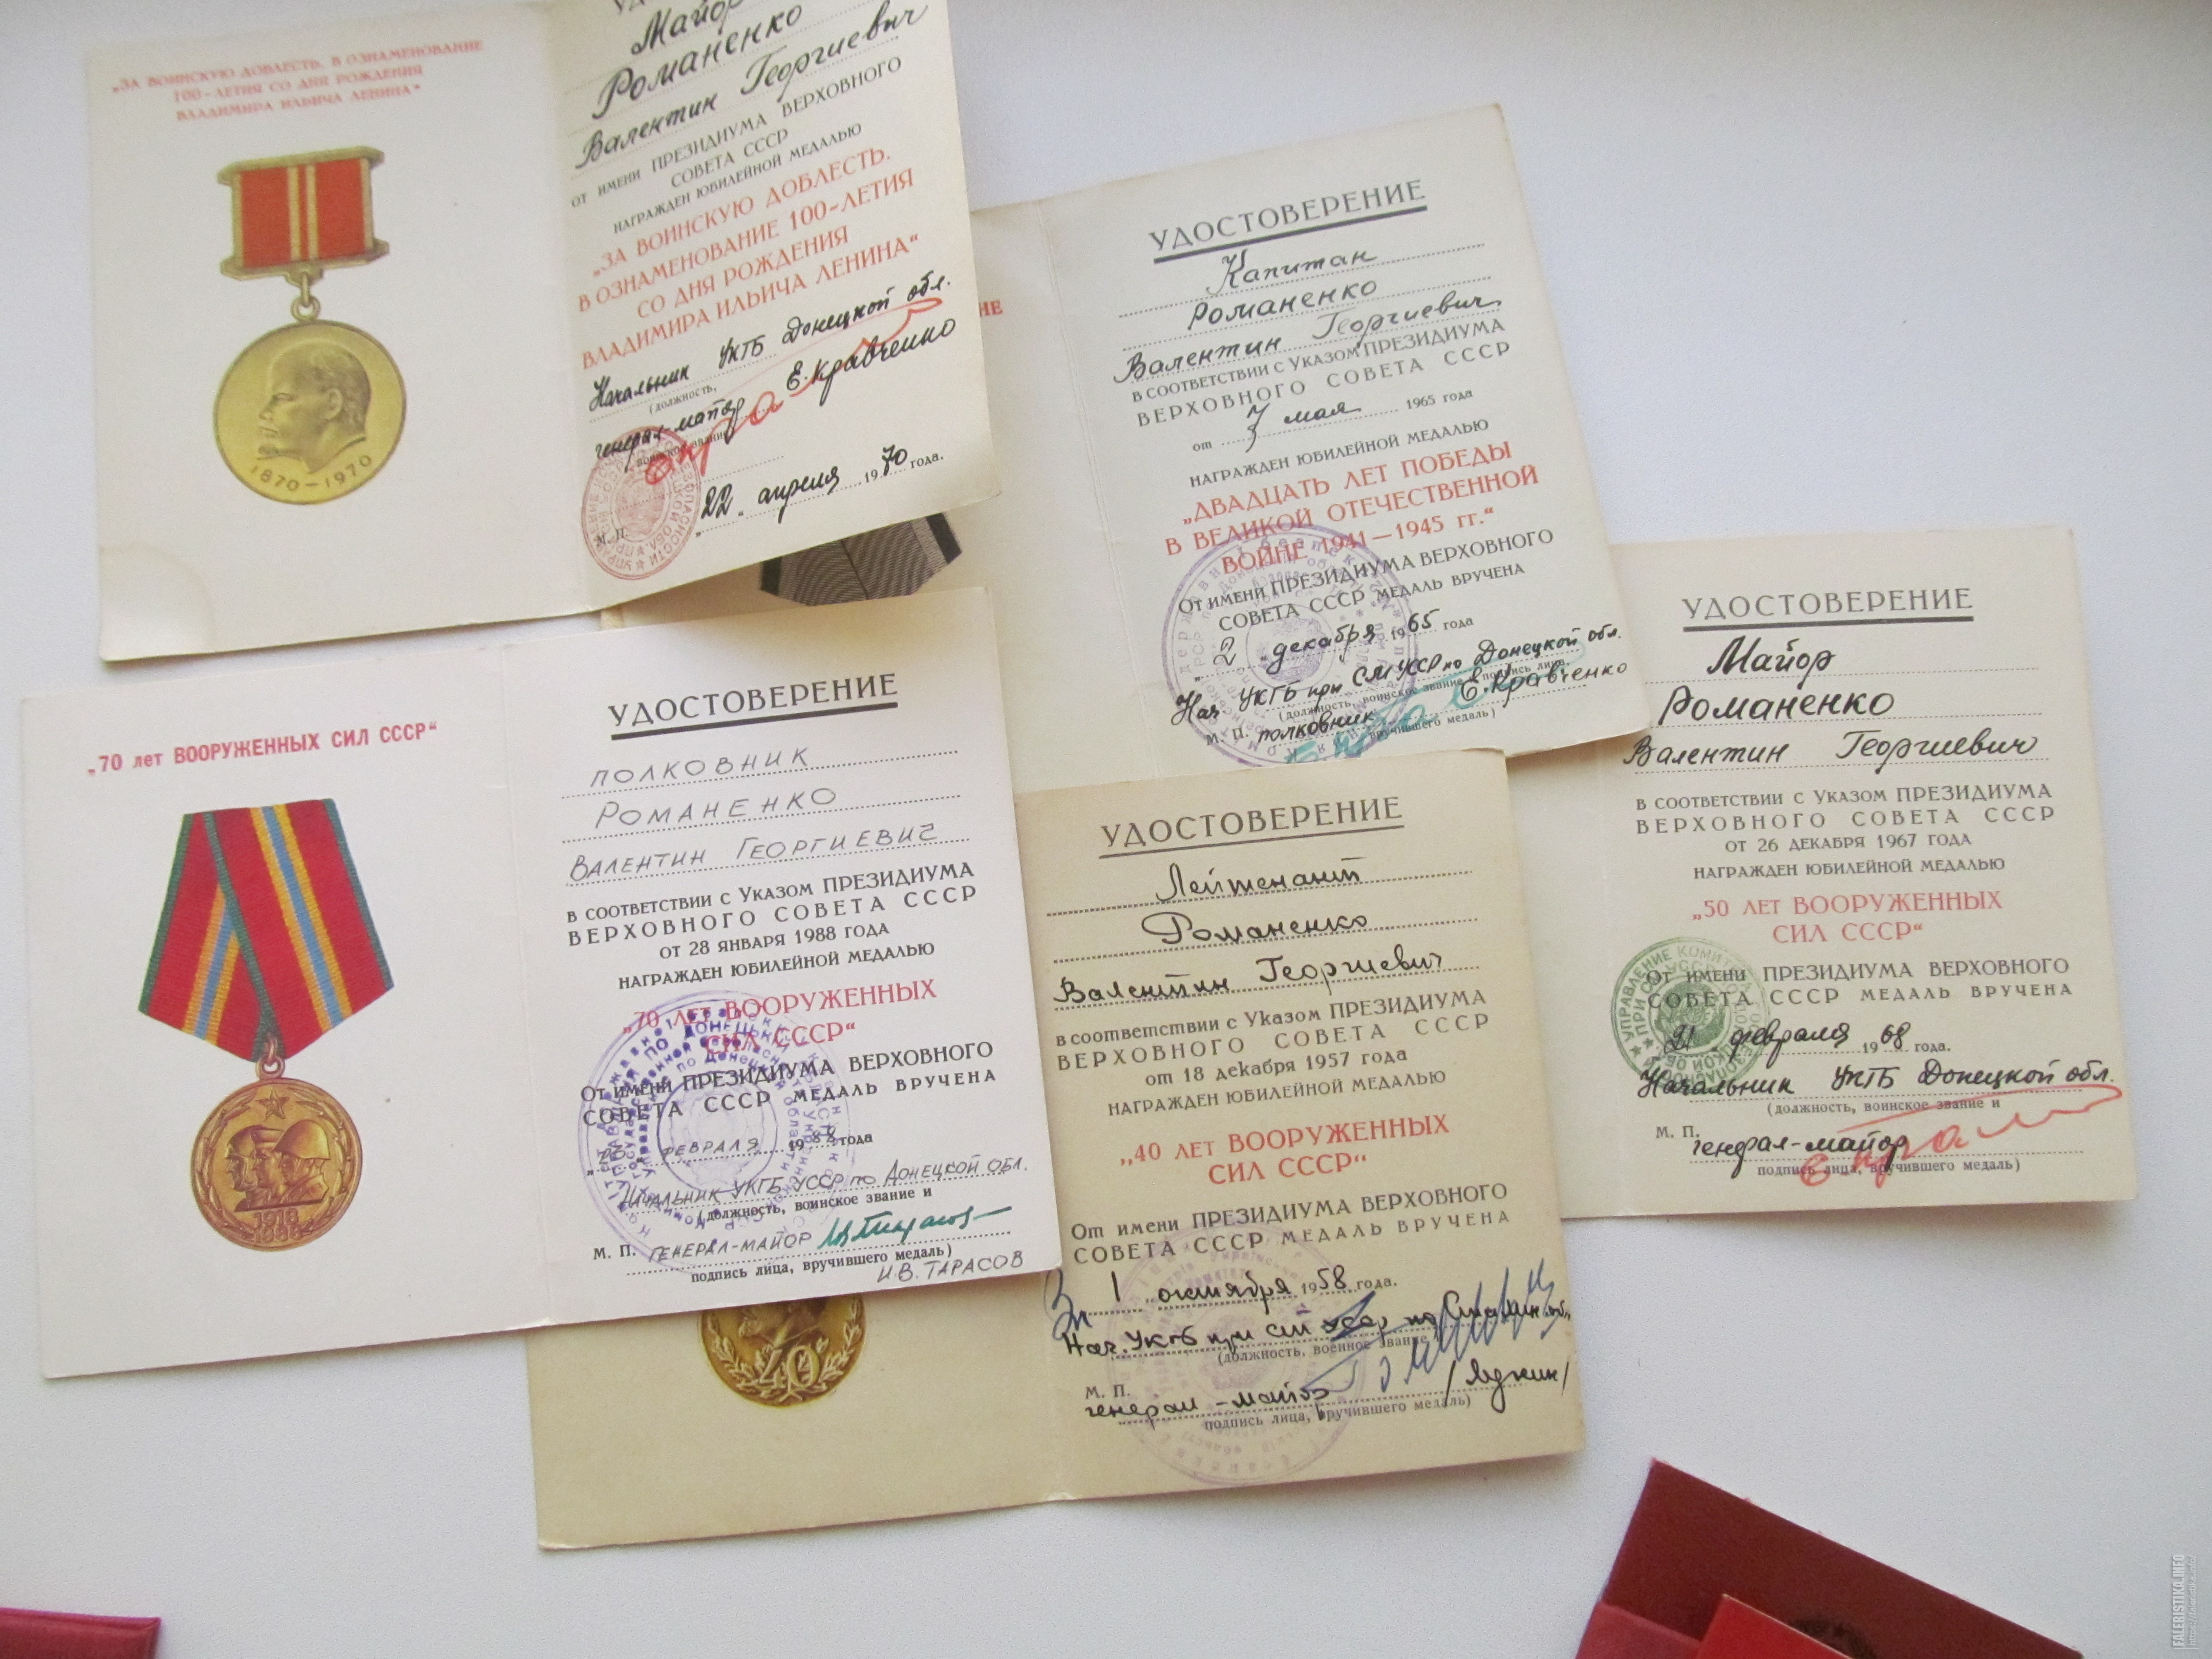 „ЗА ВОИНСКУЮ ДОБЛЕСТЬ. В ОЗНАМЕНОВАНИЕ
100-ЛЕТИЯ СО ДНЯ РОЖДЕНИЯ
ВЛАДИМИРА ИЛЬИЧА ЛЕНИНА“
1870-1970
Майор
Романенко
Валентин Георгиевич
от имени ПРЕЗИДИУМА ВЕРХОВНОГО
СОВЕТА СССР
НАГРАЖДЕН ЮБИЛЕЙНОЙ МЕДАЛЬЮ
„ЗА ВОИНСКУЮ ДОБЛЕСТЬ.
В ОЗНАМЕНОВАНИЕ 100-ЛЕТИЯ
СО ДНЯ РОЖДЕНИЯ
ВЛАДИМИРА ИЛЬИЧА ЛЕНИНА“
Начальник УКГБ Донецкой обл.
(должность,
генерал-майор Е. Кравченко
воинское звание
М. П.
„22 апреля 1970 года.
УДОСТОВЕРЕНИЕ
Капитан
Романенко
Валентин Георгиевич
в соответствии с Указом ПРЕЗИДИУМА
ВЕРХОВНОГО СОВЕТА СССР
от 7 мая 1965 года
НАГРАЖДЕН ЮБИЛЕЙНОЙ МЕДАЛЬЮ
„ДВАДЦАТЬ ЛЕТ ПОБЕДЫ
В ВЕЛИКОЙ ОТЕЧЕСТВЕННОЙ
ВОЙНЕ 1941—1945 гг.“
От имени ПРЕЗИДИУМА ВЕРХОВНОГО
СОВЕТА СССР МЕДАЛЬ ВРУЧЕНА
„2 „ декабря 1965 года
Нач УКГБ при СМ УССР по Донецкой обл.
(должность, воинское звание и подпись лица,
М. П. полковник Е. Кравченко
вручившего медаль)
УДОСТОВЕРЕНИЕ
Майор
Романенко
Валентин Георгиевич
в соответствии с Указом ПРЕЗИДИУМА
ВЕРХОВНОГО СОВЕТА СССР
от 26 ДЕКАБРЯ 1967 ГОДА
НАГРАЖДЕН ЮБИЛЕЙНОЙ МЕДАЛЬЮ
„50 ЛЕТ ВООРУЖЕННЫХ
СИЛ СССР“
От имени ПРЕЗИДИУМА ВЕРХОВНОГО
СОВЕТА СССР МЕДАЛЬ ВРУЧЕНА
„21 февраля 1968 года.
Начальник УКГБ Донецкой обл.
(должность, воинское звание и
М. П.
генерал-майор
подпись лица, вручившего медаль)
„70 лет ВООРУЖЕННЫХ СИЛ СССР“
1918
1988
УДОСТОВЕРЕНИЕ
ПОЛКОВНИК
РОМАНЕНКО
ВАЛЕНТИН ГЕОРГИЕВИЧ
в соответствии с Указом ПРЕЗИДИУМА
ВЕРХОВНОГО СОВЕТА СССР
от 28 ЯНВАРЯ 1988 ГОДА
НАГРАЖДЕН ЮБИЛЕЙНОЙ МЕДАЛЬЮ
„70 ЛЕТ ВООРУЖЕННЫХ
СИЛ СССР“
От имени ПРЕЗИДИУМА ВЕРХОВНОГО
СОВЕТА СССР МЕДАЛЬ ВРУЧЕНА
ФЕВРАЛЯ 1988 года
НАЧАЛЬНИК УКГБ УССР по ДОНЕЦКОЙ ОБЛ.
(должность, воинское звание и
М. П. ГЕНЕРАЛ-МАЙОР
подпись лица, вручившего медаль)
И.В. ТАРАСОВ
40
УДОСТОВЕРЕНИЕ
Лейтенант
Романенко
Валентин Георгиевич
в соответствии с Указом ПРЕЗИДИУМА
ВЕРХОВНОГО СОВЕТА СССР
от 18 декабря 1957 года
НАГРАЖДЕН ЮБИЛЕЙНОЙ МЕДАЛЬЮ
„40 ЛЕТ ВООРУЖЕННЫХ
СИЛ СССР“
От имени ПРЕЗИДИУМА ВЕРХОВНОГО
СОВЕТА СССР МЕДАЛЬ ВРУЧЕНА
1 октября 1958 года.
Нач. УКГБ при СМ УССР по
(должность, военное звание
М. П.
генерал-майор
подпись лица, вручившего медаль)
FALERISTIKA.INFO